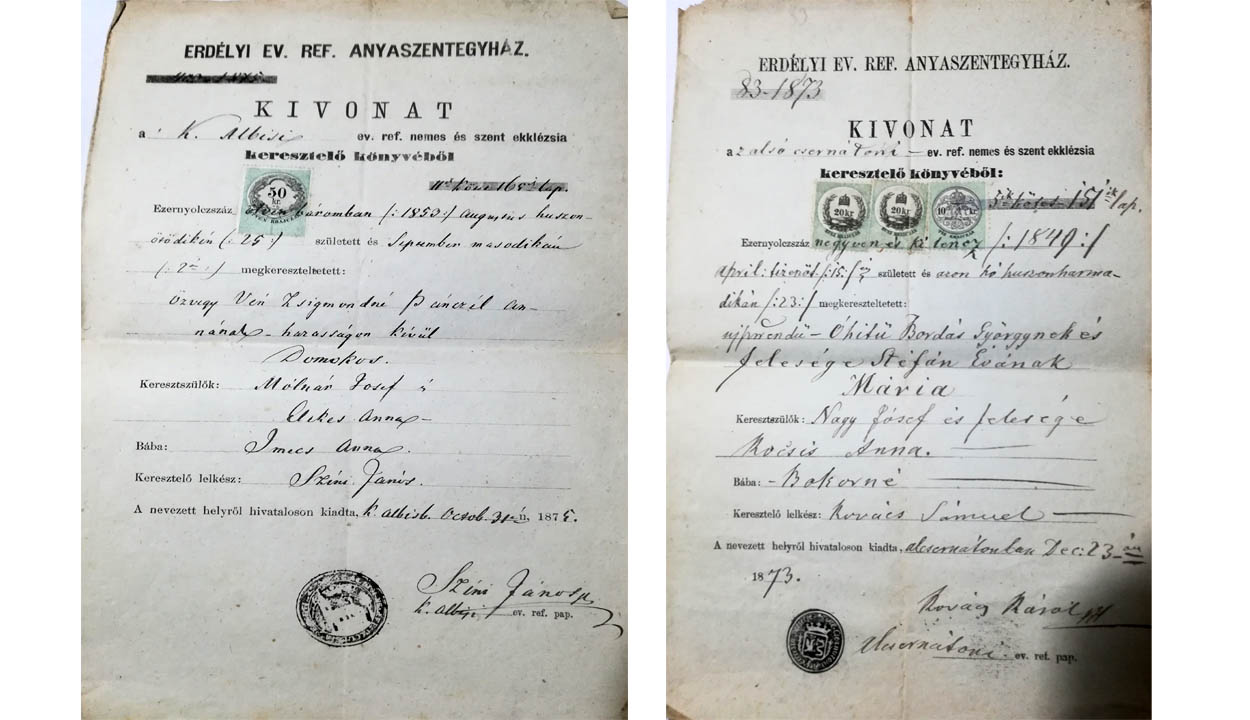 ERDÉLYI EV. REF. ANYASZENTEGYHÁZ.
KIVONAT
a K. Albisi ev. ref. nemes és szent ekklézsia
keresztelő könyvéből
50
kr
lap.
Ezernyolczszáz ötven háromban (: 1853 :) augusztus huszon-
ötödikén (: 25 :) született és September masodikán
(: 2 :) megkereszteltetett:
özvegy Zsigmondné Pánczél An-
nának - házasságon kívül
Domokos.
Keresztszülők: Mólnár Josef é
Elekes Anna -
Bába: Imecs Anna
Keresztelő lelkész: Színi János.
A nevezett helyről hivataloson kiadta, K. Albisb. Octob. 31 én, 1875.
Színi János
K. Albisi ev. ref. pap.
83
ERDÉLYI EV. REF. ANYASZENTEGYHÁZ.
83-1873
KIVONAT
a z alsó csernátoni - ev. ref. nemes és szent ekklézsia
keresztelő könyvéből:
20 kr
20 kr
10
151 ik lap.
Ezernyolczszáz negyven és kilencz (: 1849 :)
april: tizenöt (: 15. :) született és azon hó huszonharma-
dikán (: 23 :) megkereszteltetett:
Óhitü Bordás Györgynek és
felesége Stefán Évának
Mária
Keresztszülők: Nagy Jósef és felesége
Kocsis Anna.
Bába: - Bokorné
Keresztelő lelkész: Kovács Sámuel
A nevezett helyről hivataloson kiadta, alcsernátonban Dec: 23 án
1873.
Kovács Károly
alcsernátoni ev. ref. pap.